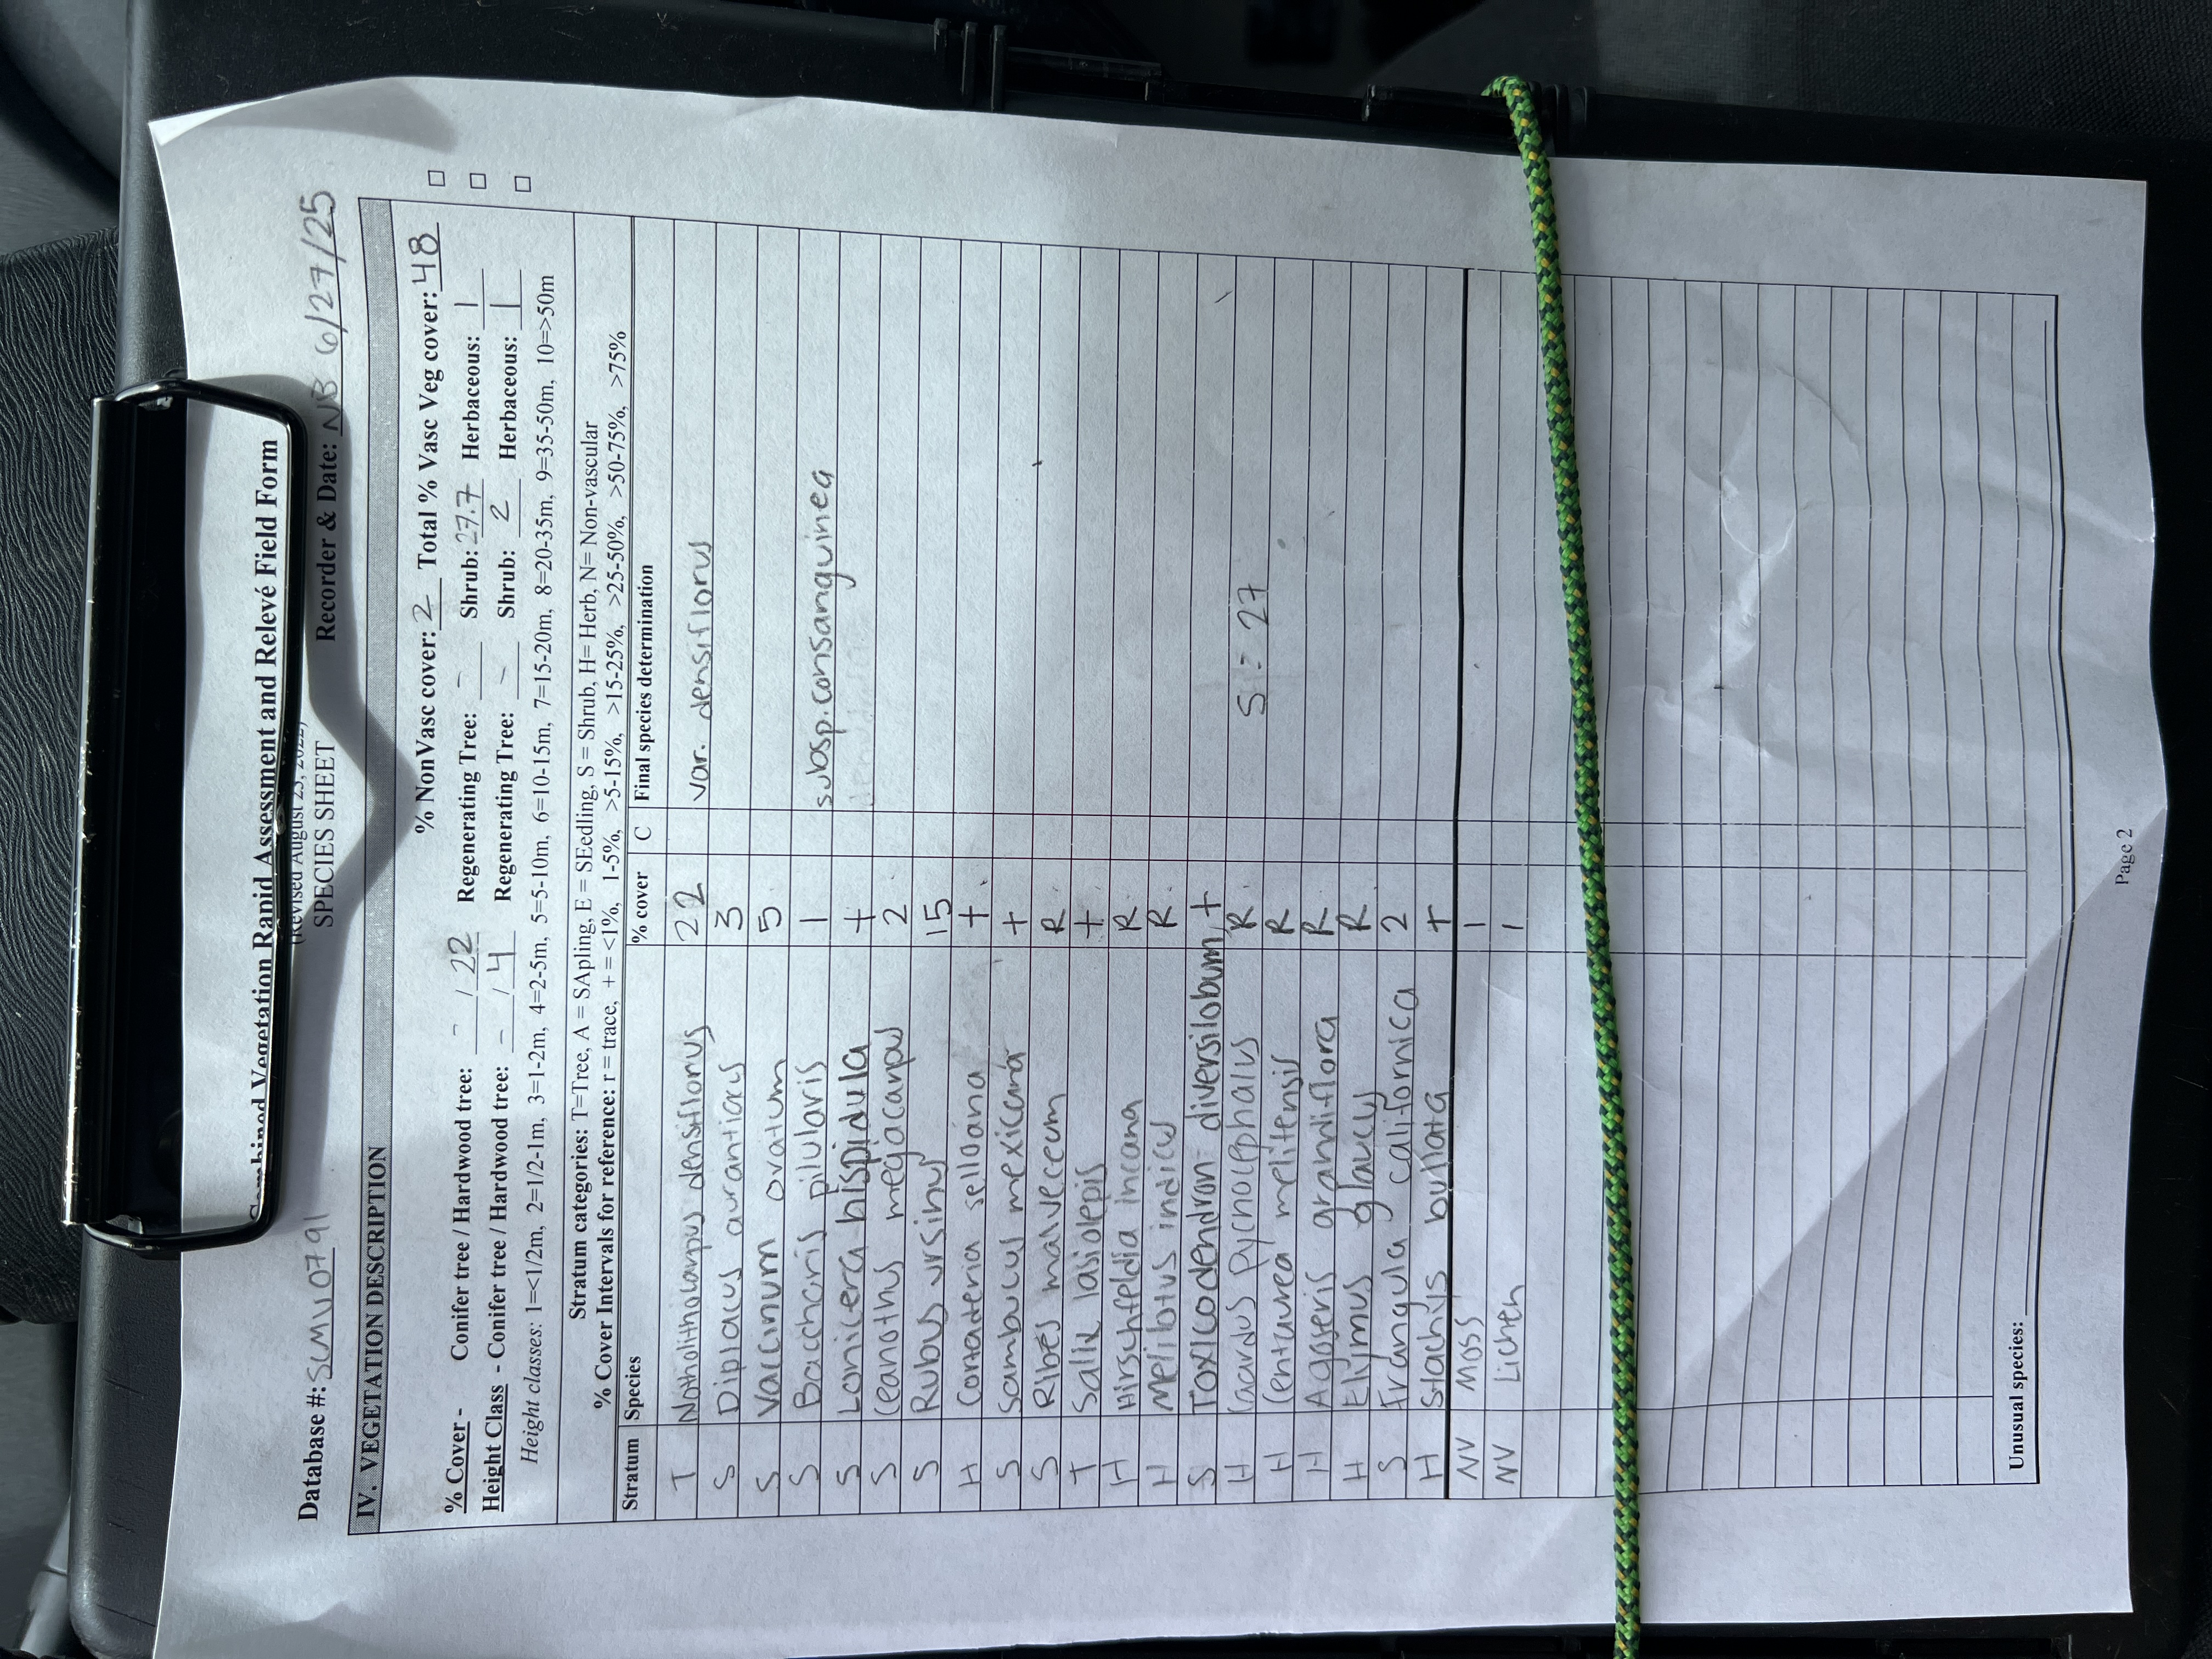 Combined Vegetation Rapid Assessment and Relevé Field Form
(Revised August 23, 2022)
SPECIES SHEET
Database #: SCMU0791 Recorder & Date: NB 6/27/25
IV. VEGETATION DESCRIPTION
% NonVasc cover: 2 Total % Vasc Veg cover: 48
% Cover - Conifer tree / Hardwood tree: - / 22 Regenerating Tree: - Shrub: 27.7 Herbaceous: 1
Height Class - Conifer tree / Hardwood tree: - / 4 Regenerating Tree: - Shrub: 2 Herbaceous: 1
Height classes: 1=<1/2m, 2=1/2-1m, 3=1-2m, 4=2-5m, 5=5-10m, 6=10-15m, 7=15-20m, 8=20-35m, 9=35-50m, 10=>50m
Stratum categories: T=Tree, A = SApling, E = SEedling, S = Shrub, H= Herb, N= Non-vascular
% Cover Intervals for reference: r = trace, + = <1%, 1-5%, >5-15%, >15-25%, >25-50%, >50-75%, >75%
Stratum Species % cover C Final species determination
T Notholithocarpus densiflorus 22 var. densiflorus
S Diplacus aurantiacus 3
S Vaccinum ovatum 5
S Baccharis pilularis 1 subsp. consanguinea
S Lonicera hispidula +
S Ceanothus megacarpus 2
S Rubus ursinus 15
H Conaderia selloana +
S Sambucus mexicana +
S Ribes malveceum R
T Salix lasiolepis +
H Hirschfeldia incana R
H Melilotus indicus R
S Toxicodendron diversilobum +
H Cardus pycnocephalus R S = 27
H Centaurea melitensis R
H Agoseris grandiflora R
H Elymus glaucus R
S Frangula californica 2
H Stachys bullata +
NV Moss 1
NV Lichen 1
Unusual species:
Page 2